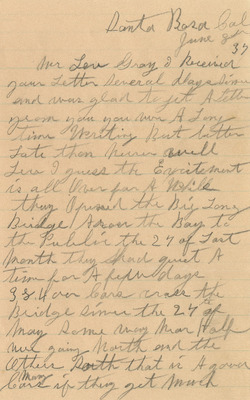 Santa Rosa Cal
June 8th
37
Mr Lew Gray I Received
your Letter Several days Since
and was glad to get A letter
from you you was A Long
time Writing But better
Late than never well
Lew I guess the Excitement
is all Over for A While
they Opened the Big Long
Bridge Across the Bay to
the Public the 27 of Last
Month they had quiet A
time for A few days
334 over Cars cross the
Bridge Since the 27 of
May Some way Mar Half
was going North and the
Others South that is A good
Many
Cars if they get Much